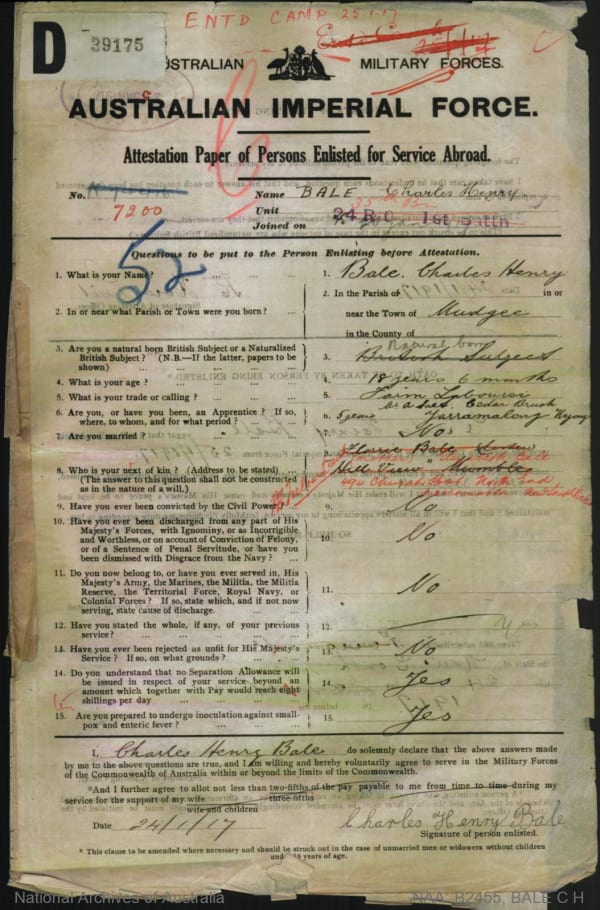 ENTD CAMP 25.1.17
D
39175
AUSTRALIAN MILITARY FORCES.
AUSTRALIAN IMPERIAL FORCE.
Attestation Paper of Persons Enlisted for Service Abroad.
No. 7200
Name BALE Charles Henry.
Unit
Joined on
52
Questions to be put to the Person Enlisting before Attestation.
1. What is your Name? ... ... ... 1. Bale. Charles Henry
2. In or near what Parish or Town were you born? ... 2. In the Parish of in or
near the Town of Mudgee
in the County of
3. Are you a natural born British Subject or a Naturalized British Subject? (N.B.—If the latter, papers to be shown) ... 3. Natural born
British Subject
4. What is your age? ... 4. 18 years 6 months
5. What is your trade or calling? ... 5. Farm Labourer
6. Are you, or have you been, an Apprentice? If so, where, to whom, and for what period? ... 6. Cedar Brush
5 years Yarramalong Wyong
7. Are you married? ... 7. No
8. Who is your next of kin? (Address to be stated) ... (The answer to this question shall not be constructed as in the nature of a will.) 8. Florrie Bale
Hill View
9. Have you ever been convicted by the Civil Power? 9. No
10. Have you ever been discharged from any part of His Majesty's Forces, with Ignominy, or as Incorrigible and Worthless, or on account of Conviction of Felony, or of a Sentence of Penal Servitude, or have you been dismissed with Disgrace from the Navy? ... 10. No
11. Do you now belong to, or have you ever served in, His Majesty's Army, the Marines, the Militia, the Militia Reserve, the Territorial Force, Royal Navy, or Colonial Forces? If so, state which, and if not now serving, state cause of discharge. 11. No
12. Have you stated the whole, if any, of your previous service? ... 12.
13. Have you ever been rejected as unfit for His Majesty's Service? If so, on what grounds? ... 13. No
14. Do you understand that no Separation Allowance will be issued in respect of your service beyond an amount which together with Pay would reach eight shillings per day ... 14. Yes
15. Are you prepared to undergo inoculation against small-pox and enteric fever? ... 15. Yes
I, Charles Henry Bale do solemnly declare that the above answers made
by me to the above questions are true, and I am willing and hereby voluntarily agree to serve in the Military Forces
of the Commonwealth of Australia within or beyond the limits of the Commonwealth.
*And I further agree to allot not less than two-fifths of the pay payable to me from time to time during my
three-fifths
service for the support of my wife
wife and children
Date 24/1/17 Charles Henry Bale
Signature of person enlisted.
* This clause to be amended where necessary and should be struck out in the case of unmarried men or widowers without children
under 18 years of age.
National Archives of Australia NAA: B2455, BALE C H